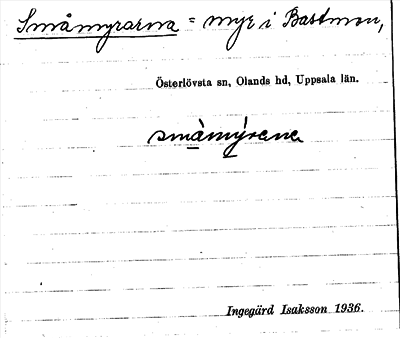 Småmyrarna = myr i Bastmon,
Österlövsta sn, Olands hd, Uppsala län.
småmýrana
Ingegärd Isaksson 1936.